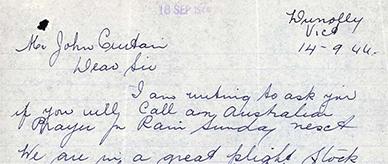 18 SEP 1944
Dunolly
Vict
14-9-44.
Mr John Curtain
Dear Sir
I am writing to ask you
if you will Call an Australian
Prayer for Rain Sunday next
We are in a great plight Stock